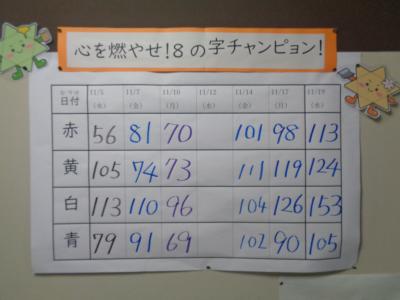 心を燃やせ!8の字チャンピョン!
日付 11/5 (水) 11/7 (金) 11/10 (月) 11/12 (水) 11/14 (金) 11/17 (月) 11/19 (水)
赤 56 81 70 101 98 113
黄 105 74 73 111 119 124
白 113 110 96 104 126 153
青 79 91 69 102 90 105